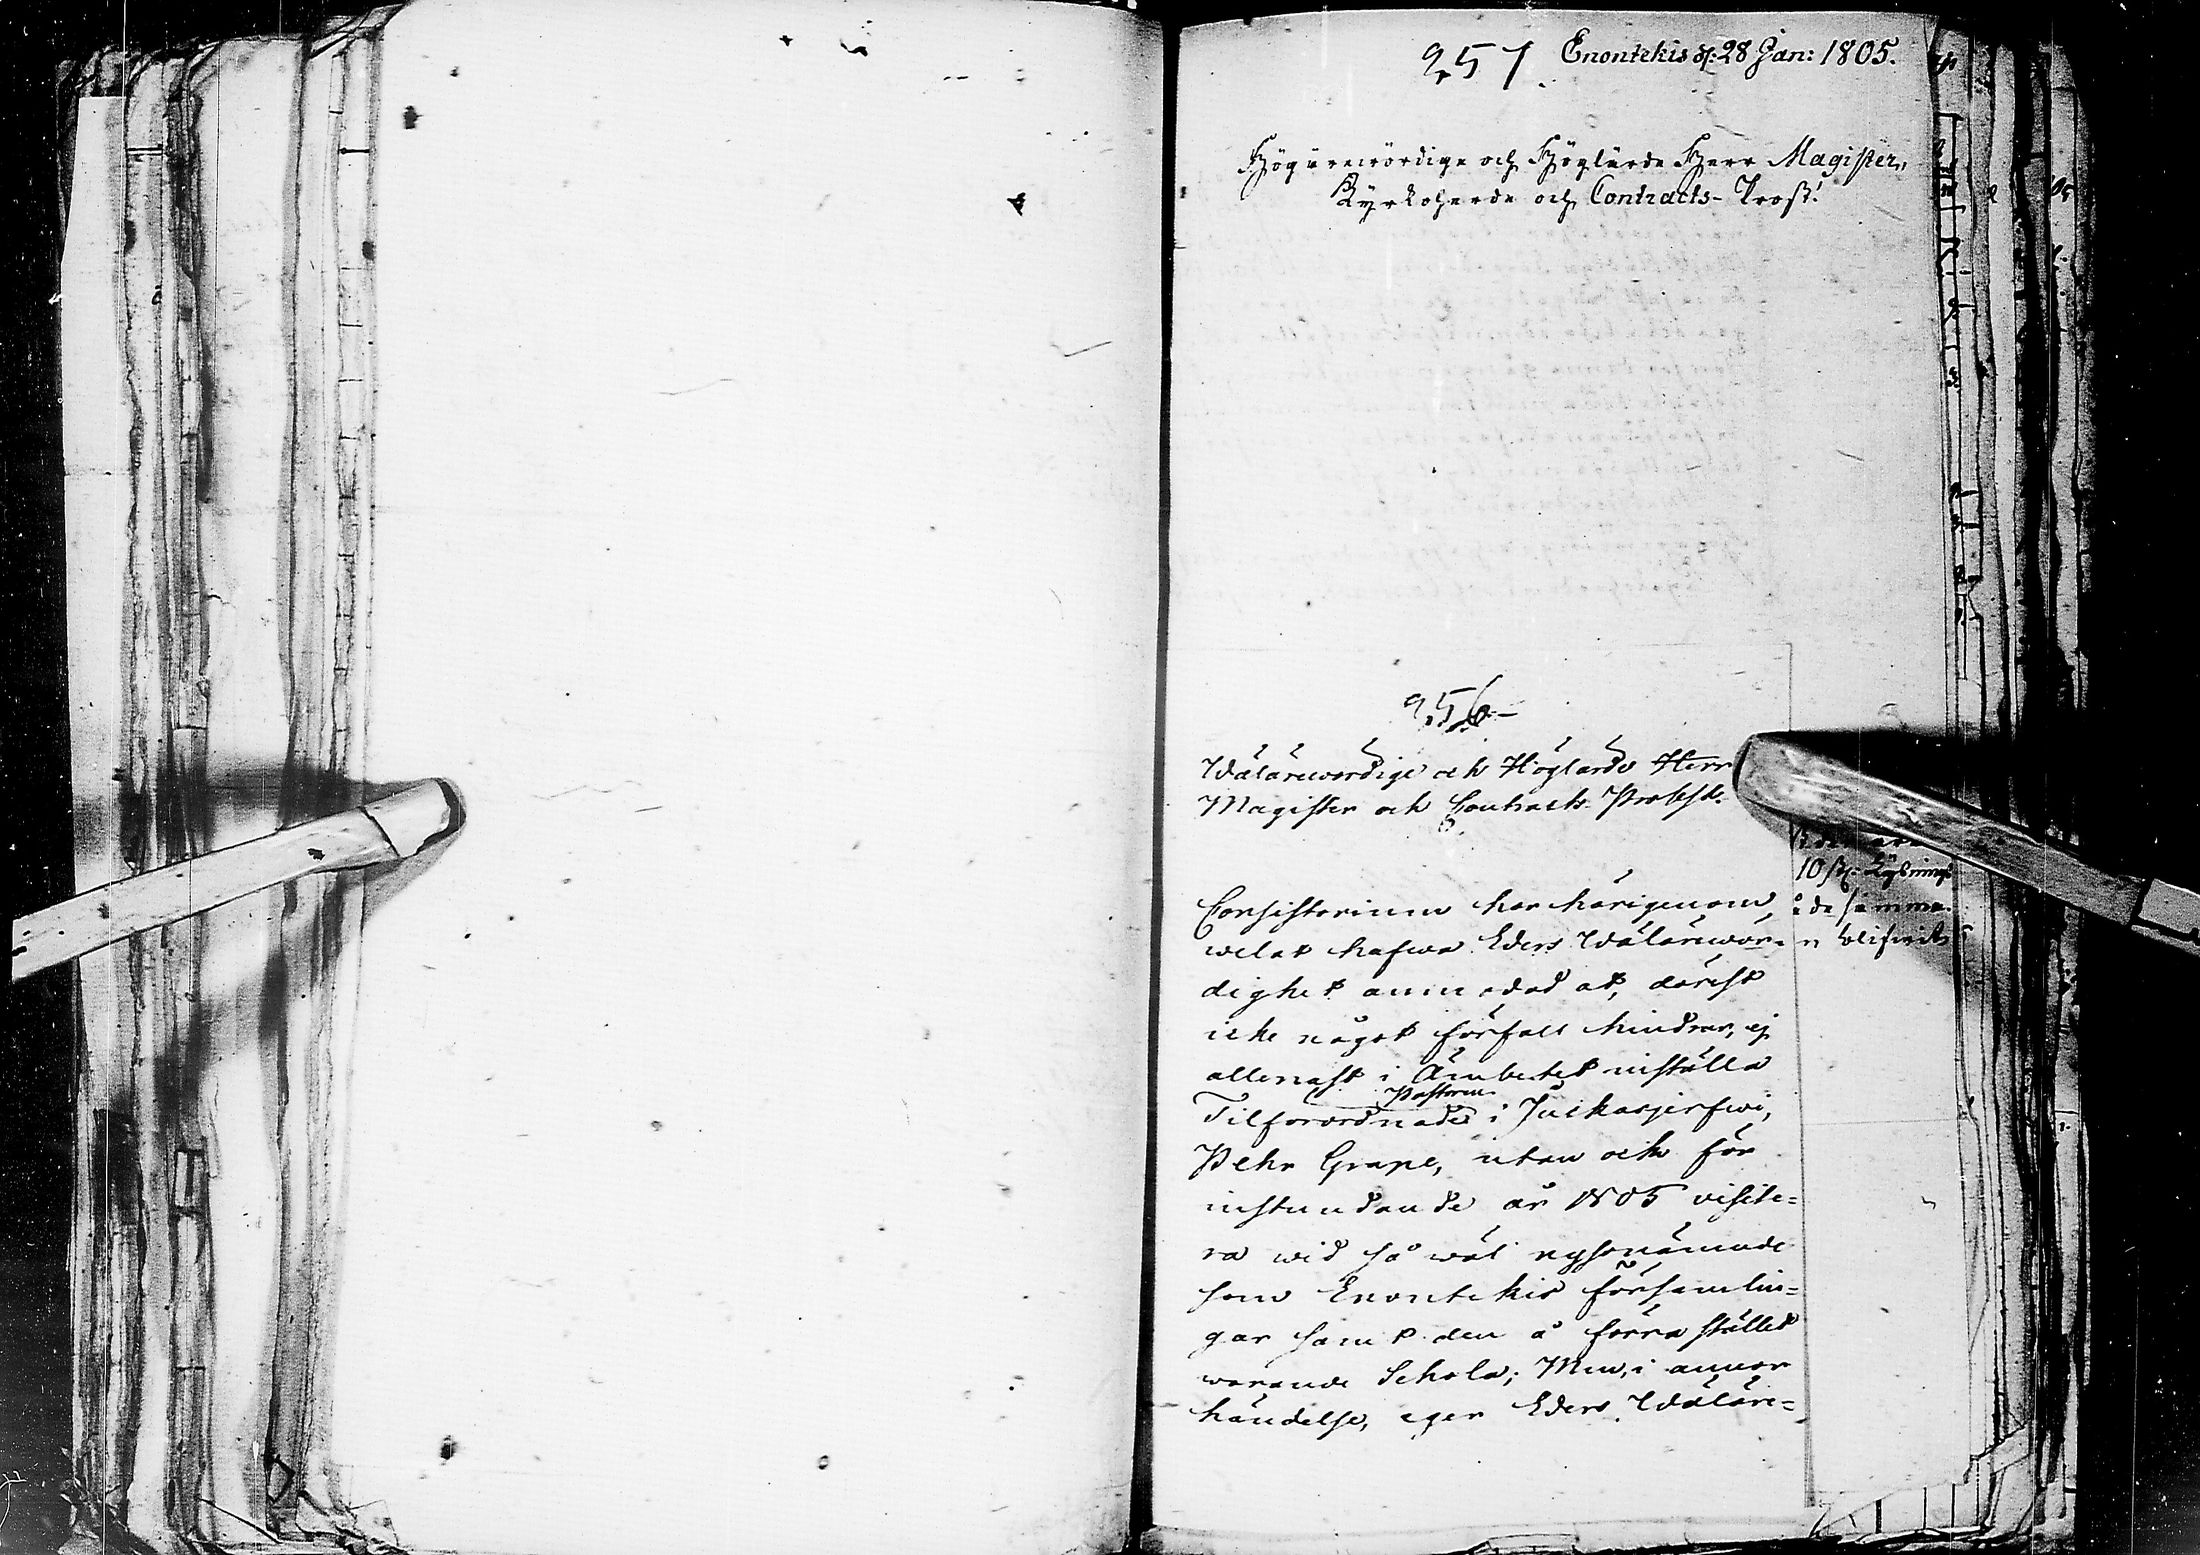 257. Enontekis d: 28 Jan: 1805.
Högwrewördige och Höglärde Herr Magister,
Kyrkoherde och Contracts-Prost!
256.
Wälärewördige och Höglärde Herr
Magister och Contracts Probst.
Consistorium har härigenom
welat hafwa Eders Wälärewör-
dighet anmodad at, därest
icke något förfall hindrar, ej
allenast i Ämbetet inställa
Tilförordnade Pastoren i Juckasjerfwi,
Pehr Grape, utan och för
instundande år 1805 visite=
ra wid så wäl nyssnämnde
som Enontekis församlin=
gar samt den å förra stället
warande Schola; Men, i annor
händelse, eger Eders Wäläre=
10 sk:
de samma
n blifwit